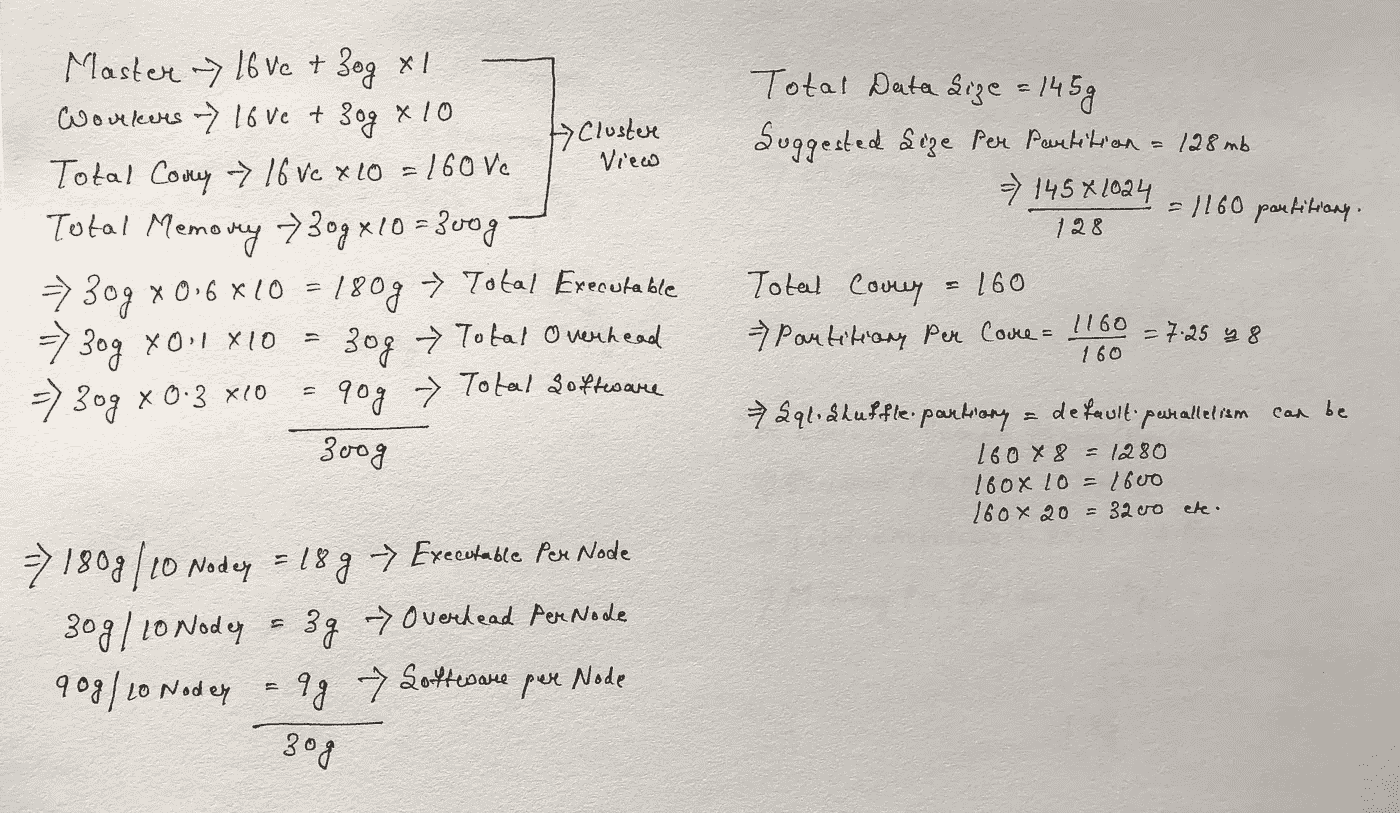 Master → 16 Vc + 30g × 1
Workers → 16 Vc + 30g × 10
Total Cores → 16 Vc × 10 = 160 Vc
Total Memory → 30g × 10 = 300g
→ Cluster
View
⇒ 30g × 0.6 × 10 = 180g → Total Executable
⇒ 30g × 0.1 × 10 = 30g → Total Overhead
⇒ 30g × 0.3 × 10 = 90g → Total Software
300g
⇒ 180g / 10 Nodes = 18g → Executable Per Node
30g / 10 Nodes = 3g → Overhead Per Node
90g / 10 Nodes = 9g → Software per Node
30g
Total Data Size = 145g
Suggested Size Per Partition = 128 mb
⇒ 145 × 1024 / 128 = 1160 partitions.
Total Cores = 160
⇒ Partitions Per Core = 1160 / 160 = 7.25 ≈ 8
⇒ Sql.Shuffle.partions = default.parallelism can be
160 × 8 = 1280
160 × 10 = 1600
160 × 20 = 3200 etc.